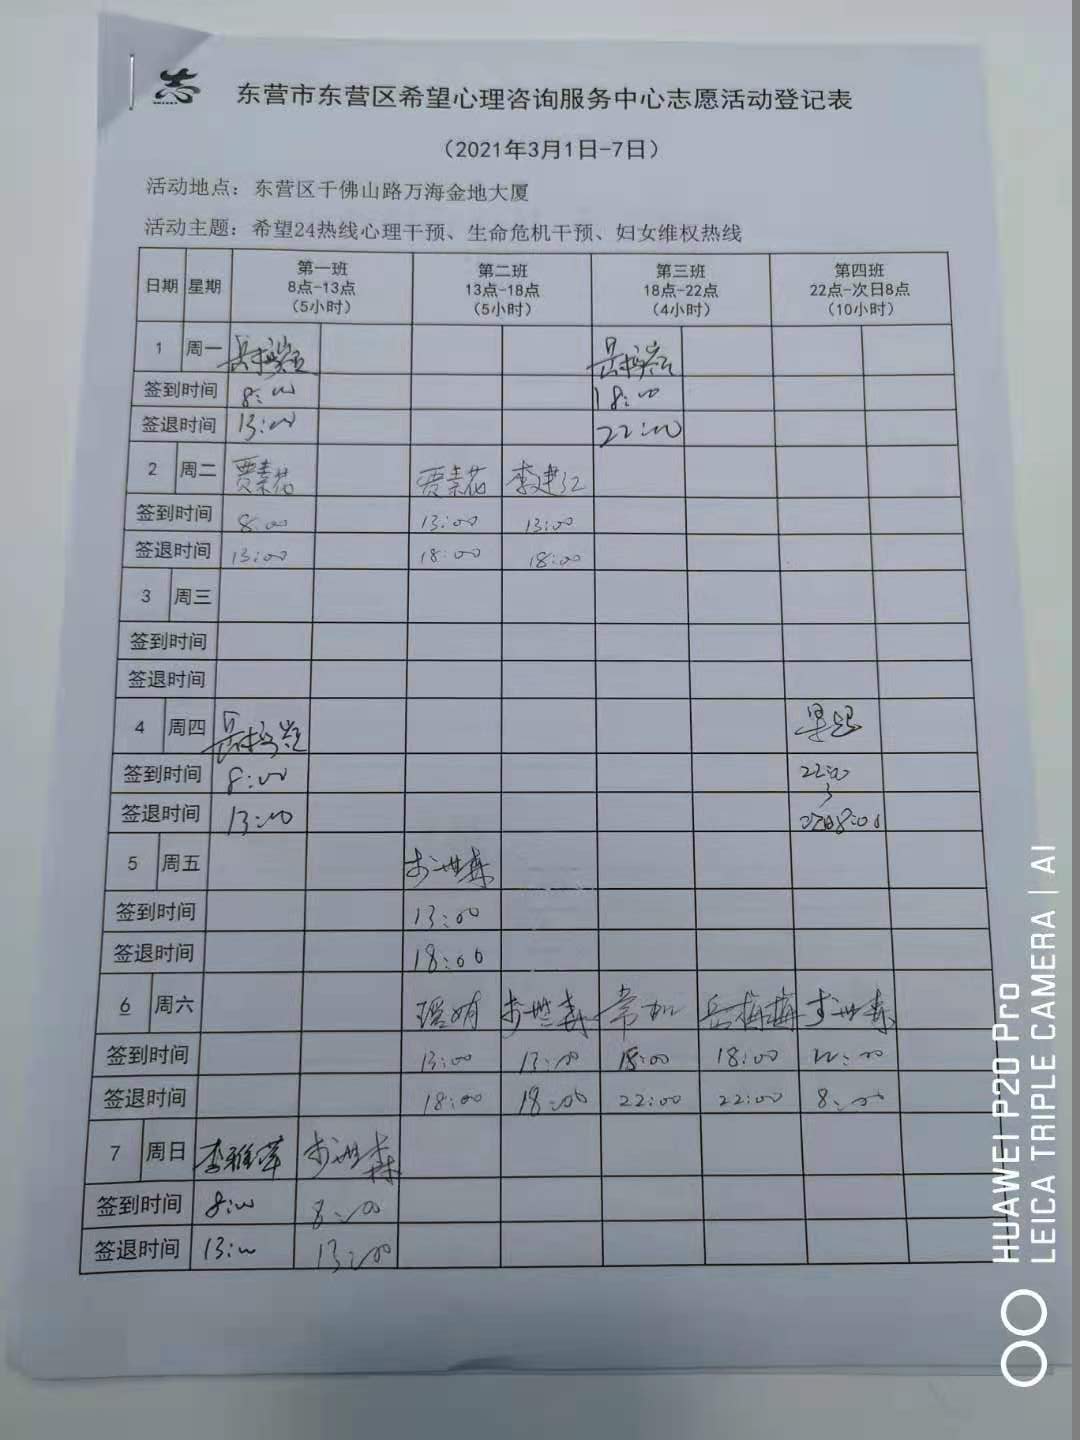 志
东营市东营区希望心理咨询服务中心志愿活动登记表
（2021年3月1日-7日）
活动地点：东营区千佛山路万海金地大厦
活动主题：希望24热线心理干预、生命危机干预、妇女维权热线
日期 星期 第一班 8点-13点 （5小时） 第二班 13点-18点 （5小时） 第三班 18点-22点 （4小时） 第四班 22点-次日8点 （10小时）
1 周一
签到时间 8:00 18:00
签退时间 13:00 22:00
2 周二 贾素花 贾素花 李建江
签到时间 8:00 13:00 13:00
签退时间 13:00 18:00 18:00
3 周三
签到时间
签退时间
4 周四
签到时间 8:00 22:00
签退时间 13:00 次日8:00
5 周五 步世森
签到时间 13:00
签退时间 18:00
6 周六 步世森 岳梅梅 步世森
签到时间 13:00 13:00 18:00 18:00 22:00
签退时间 18:00 18:00 22:00 22:00 8:00
7 周日 李雅萍 步世森
签到时间 8:00 8:00
签退时间 13:00 13:00
HUAWEI P20 Pro
LEICA TRIPLE CAMERA | AI